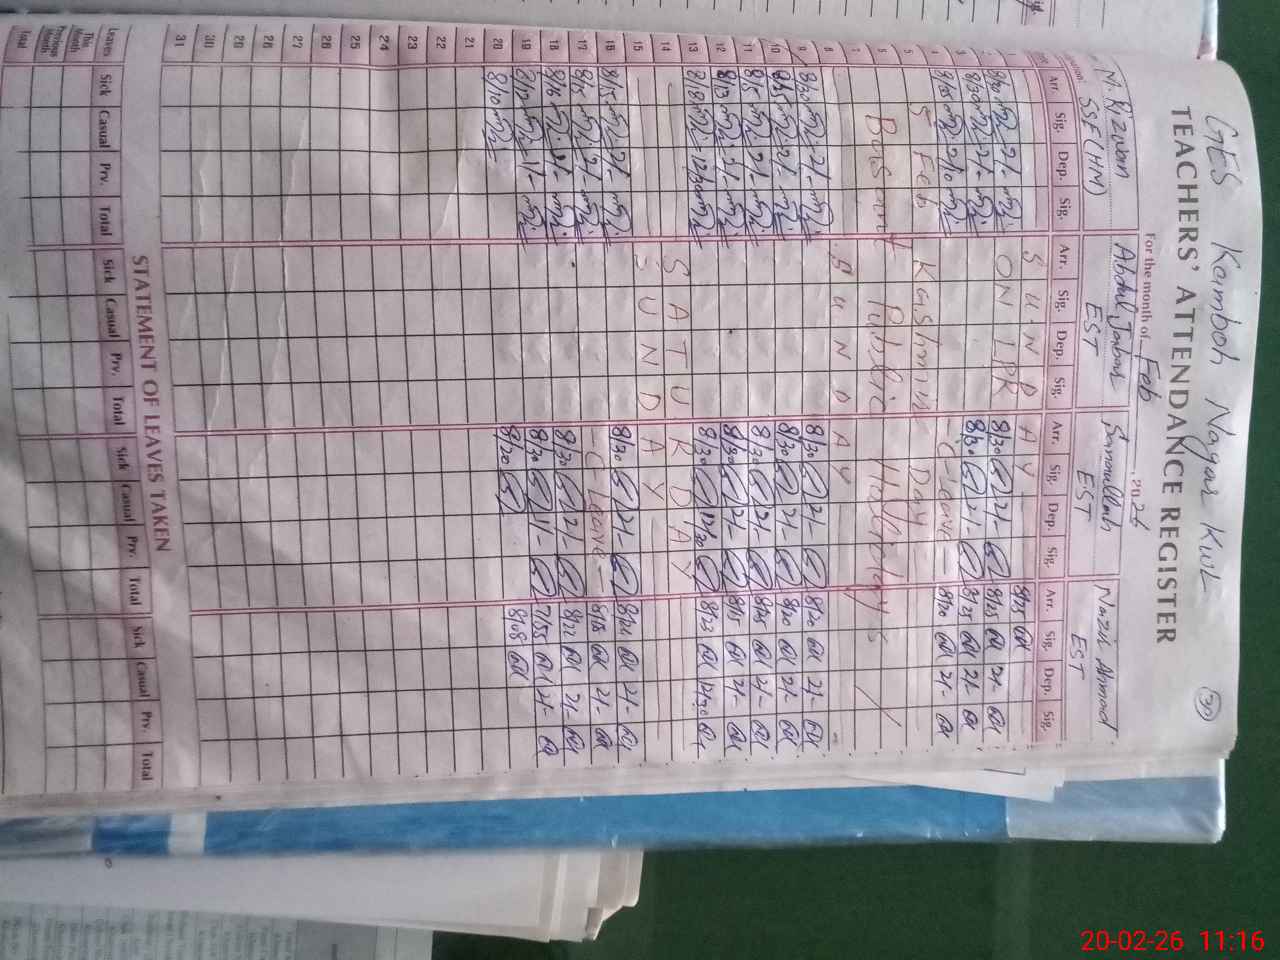 GES Kamboh Nagar KWL
TEACHERS' ATTENDANCE REGISTER
For the month of Feb, 2026
M. Rizwan Abdul Jabbar Samiullah Nazir Ahmad
SSE (HM) EST EST EST
Arr. Sig. Dep. Sig. Arr. Sig. Dep. Sig. Arr. Sig. Dep. Sig. Arr. Sig. Dep. Sig.
S U N D A Y 8/25
ON LPR 8/30 2/- 8/25 2/-
8/30 2/- 8/30 2/- 8/25 2/-
4 2/10 - C-leave - 8/20 2/-
5 5 Feb Kashmir Day
6 Basant Public Holidays
7
8 S U N D A Y
9 8/30 2/- 8/30 2/- 8/20 2/-
10 2/- 8/30 2/- 8/20 2/-
11 8/15 2/- 8/30 2/- 8/25 2/-
12 8/13 2/- 8/30 2/- 8/15 2/-
13 8/18 12/30 8/30 12/30 8/23 12/30
14 S A T U R D A Y
15 S U N D A Y
16 8/15 2/- 8/30 2/- 8/21 2/-
17 8/15 2/- - C-leave - 8/18 2/-
18 8/30 2/- 8/22 2/-
19 8/12 1/- 8/30 1/- 7/55 2/-
20 8/10 8/20 8/08
21
22
23
24
25
26
27
28
29
30
31
STATEMENT OF LEAVES TAKEN
Leaves Sick Casual Prv. Total Sick Casual Prv. Total Sick Casual Prv. Total Sick Casual Prv. Total
This Month
Previous Month
Total
20-02-26 11:16